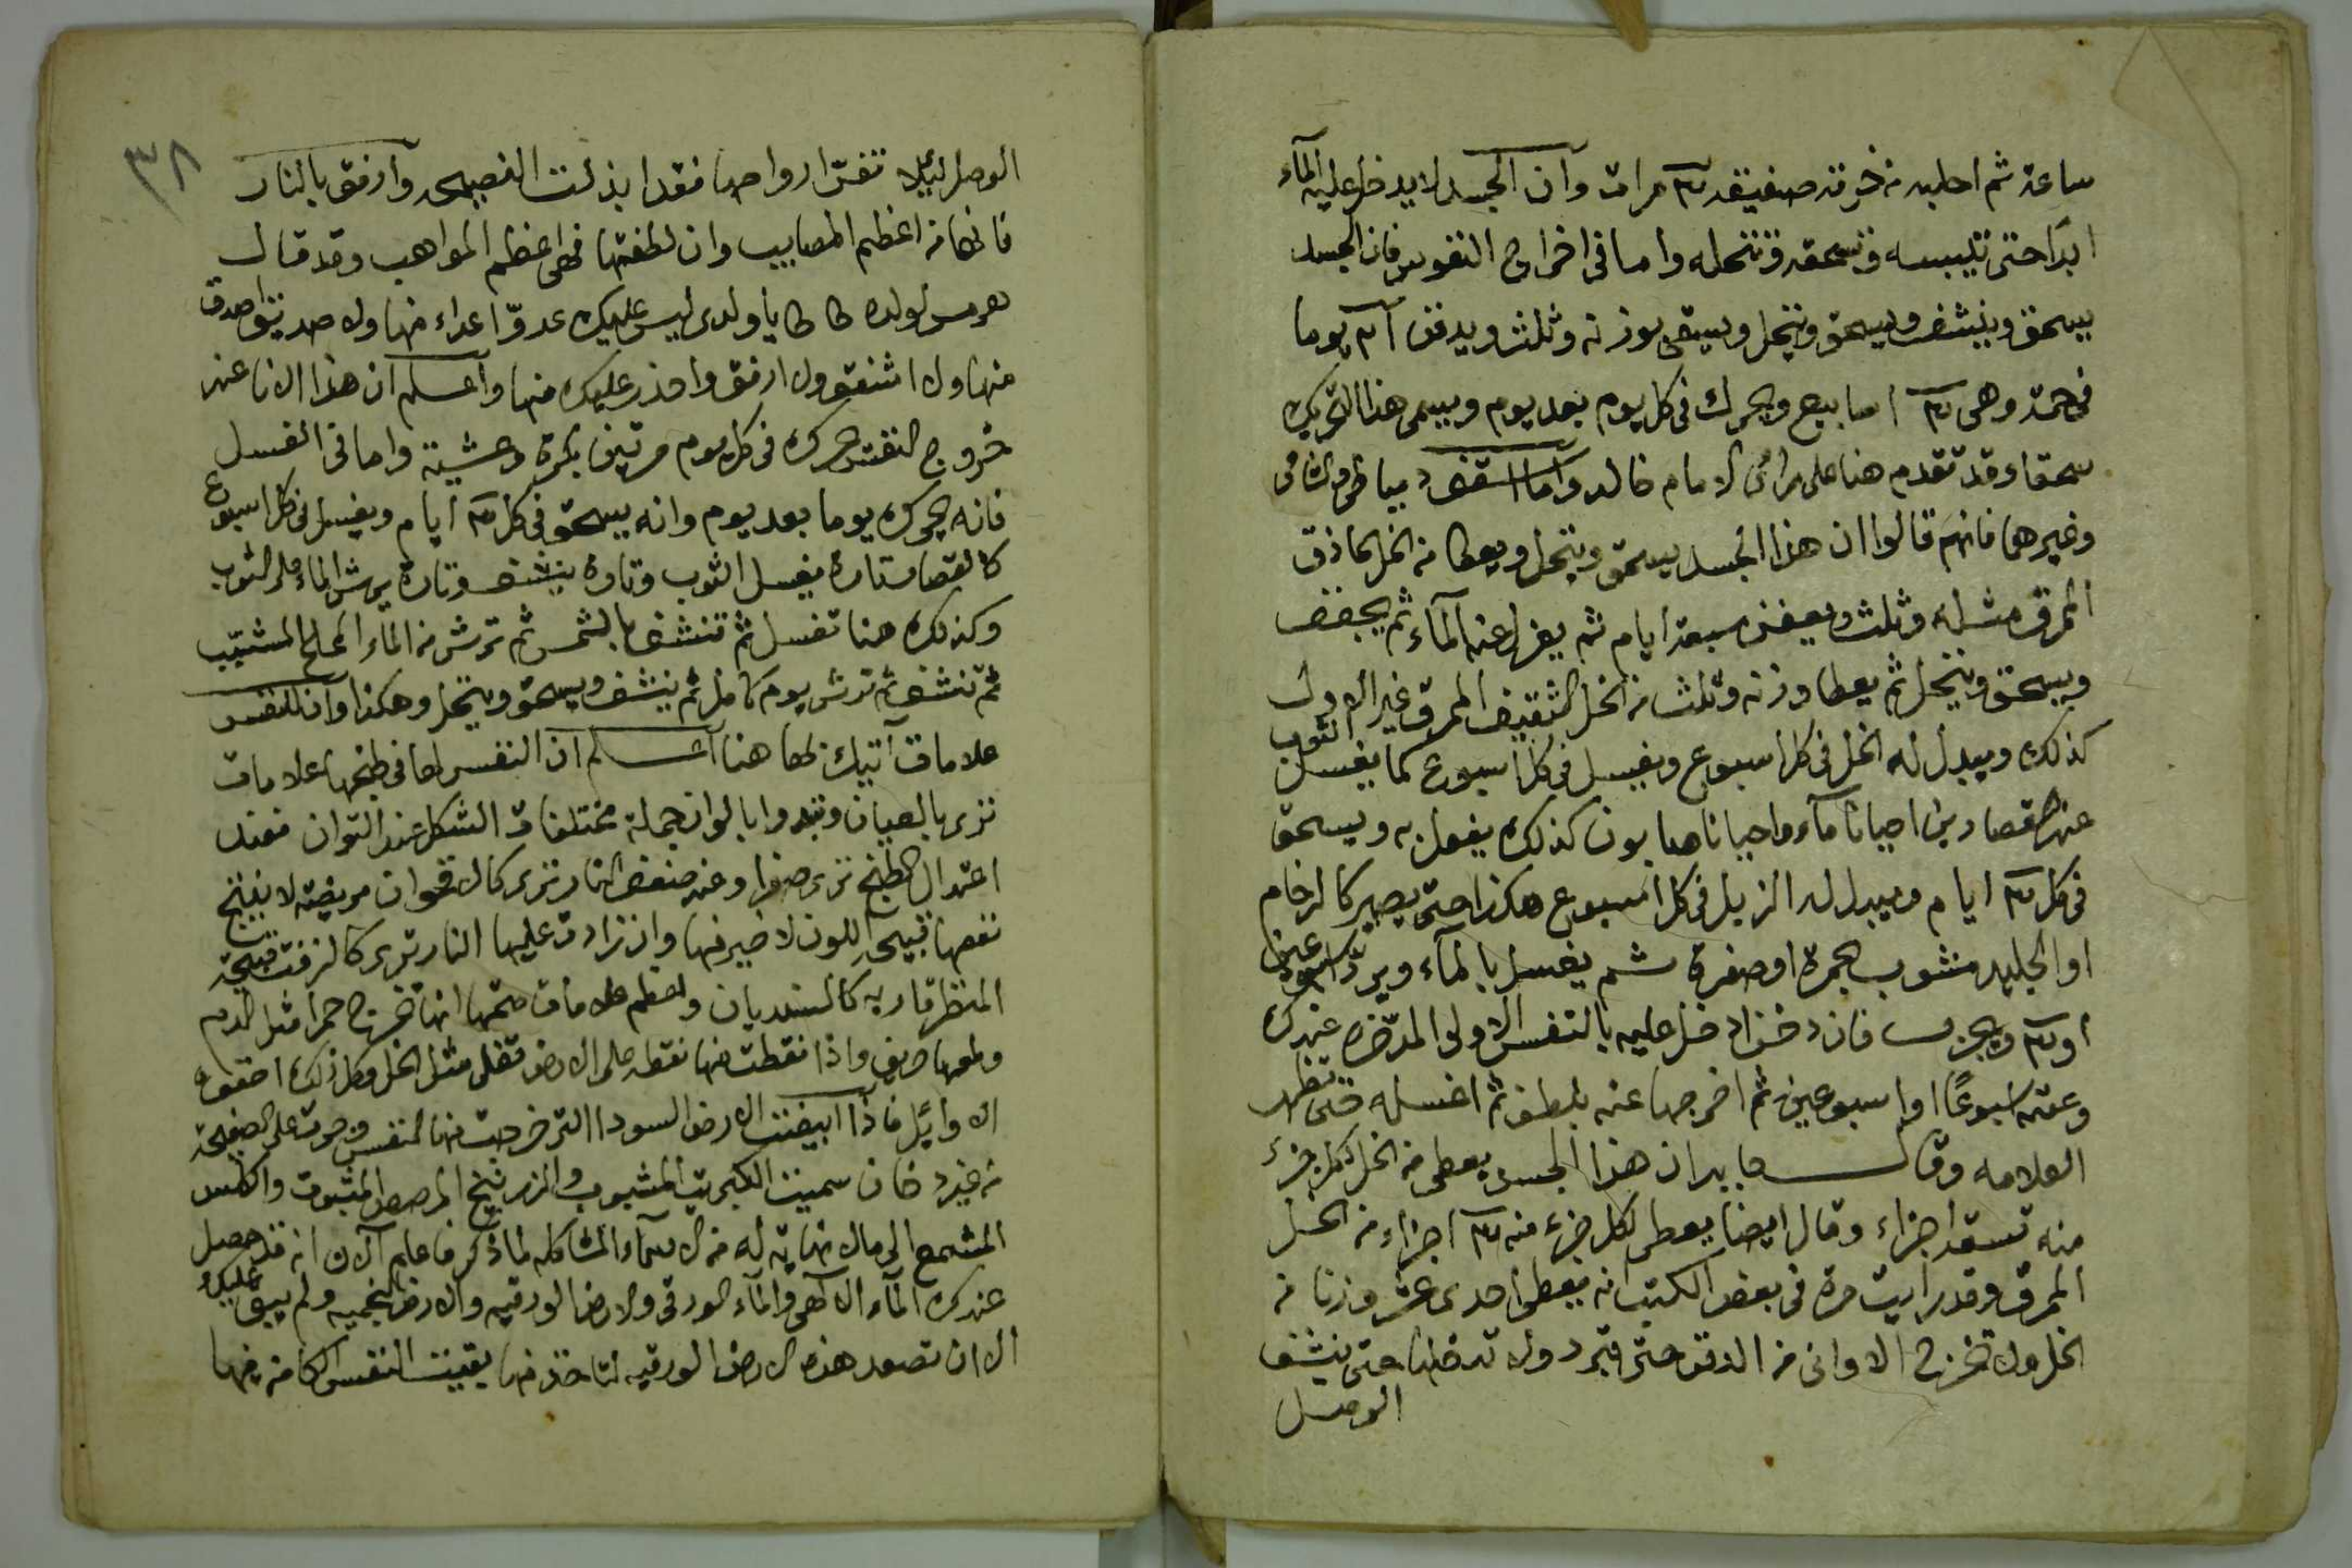 ساعة ثم احلبه من خرقة صفيقة ٣ مرات وان الجسد لا يدخل عليه الماء
ابدا حتى تيبسه وتسحقه وتنخله واما فى اخراج النفوس فان الجسد
يسحق وينشف ويسحق وينخل ويسقى بوزنه وثلث ويدفن ٢١ يوما
فى حمة وهى ٣ اسابيع ويحرك فى كل يوم بعد يوم ويسمى هذا التحريك
سحقا وقد تقدم هنا على راى الامام خالد واما اسقف دمياطى والشامى
وغيرهما فانهم قالوا ان هذا الجسد يسحق وينخل ويعطا من الخل الحاذق
المرق مثله وثلث ويعفن سبعة ايام ثم يعزل عنه الماء ثم يجفف
ويسحق وينخل ثم يعطا وزنه وثلث من الخل الثقيف الممرق غير الاول
كذلك ويبدل له الخل فى كل اسبوع ويغسل فى كل اسبوع كما يغسل الثوب
عند القصارين احيانا ماء واحيانا صابون كذلك يفعل به ويسحق
فى كل ٣ ايام ويبدل له الزبل فى كل اسبوع هكذا حتى يصير كالرخام
او الجليد منشوب بحمرة او صفرة ثم يغسل بالماء ويرد اسبوعين
او ٣ ويجرب فان دخن ادخل عليه بالنفس الاولى المدخرة عندك
وعفنه اسبوعا او اسبوعين ثم اخرجها عنه بلطف ثم اغسله حتى تظهر
العلامه وقال جابر ان هذا الجسد يعطى من الخل لكل جزء
منه تسعة اجزاء وقال ايضا يعطى لكل جزء منه ٣ اجزاء من الخل
الممرق وقد رايت مرة فى بعض الكتب انه يعطى احدى عشر وزنا من
الخل ولا تخرج الاوانى من الدفن حتى تبرد ولا تدخلها حتى ينشف
الوصل
٣٨
الوصل لئيلا تفتر ارواحها فقد ابذلت النصيحه وارفق بالنار
فانها من اعظم المصايب وان لطفتها فهى اعظم المواهب وقد قال
هرمس لولده طاطا يا ولدى ليس عليك عدوّ اعداء منها ولا صديق اصدق
منها ولا اشفق ولا ارفق واحذر عليك منها واعلم ان هذا الانا عند
خروج النفس حركه فى كل يوم مرتين بكرة وعشية واما فى الغسل
فانه يحركه يوما بعد يوم وانه يسحق فى كل ٣ ايام ويغسل فى كل اسبوع
كالقصار تارة يغسل الثوب وتارة ينشف وتارة يرش الماء على الثوب
وكذلك هنا تغسل ثم تنشف بالشمس ثم ترش من الماء المملح المشبب
ثم تنشف ثم ترش يوم كامل ثم ينشف ويسحق وينخل وهكذا وان للنفس
علامات اتيك بها هنا اعلم ان النفس لها فى طبخها علامات
ترى بالعيان وتبدوا بالوان جملة مختلفات الشكل عند التوان فعند
اعتدال الطبخ ترى صفرا وعند ضعف النار ترى كالاقحوان مريضة لا ينتج
نفعها قبيحة اللون لا خير فيها وان زادت عليها النار ترى كالزفت قبيحة
المنظر قاربه كالسنديان واعظم علامات صحتها انها تخرج حمرا مثل الدم
وطعمها حريف واذا نقطت منها نقطه على الارض تغلى مثل الخل وكل ذلك احقوه
الاوايل فاذا ابيضت الارض السودا التى خرجت منها النفس وجرت على الصفيحة
من غير دخان سميت الكبريت المشبوب والزرنيخ المرصص المثبوت والكلس
المشمع الى مالا نهاية له من الاسماء المشاكله لما ذكر فاعلم الان انه قد حصل
عندك الماء الالهى والماء الورقى والارض الورقيه والارض النجميه ولم يبق عليك
الا ان تصعد هذه الارض الورقيه لتاخذ منها بقيت النفس الكامنه فيها